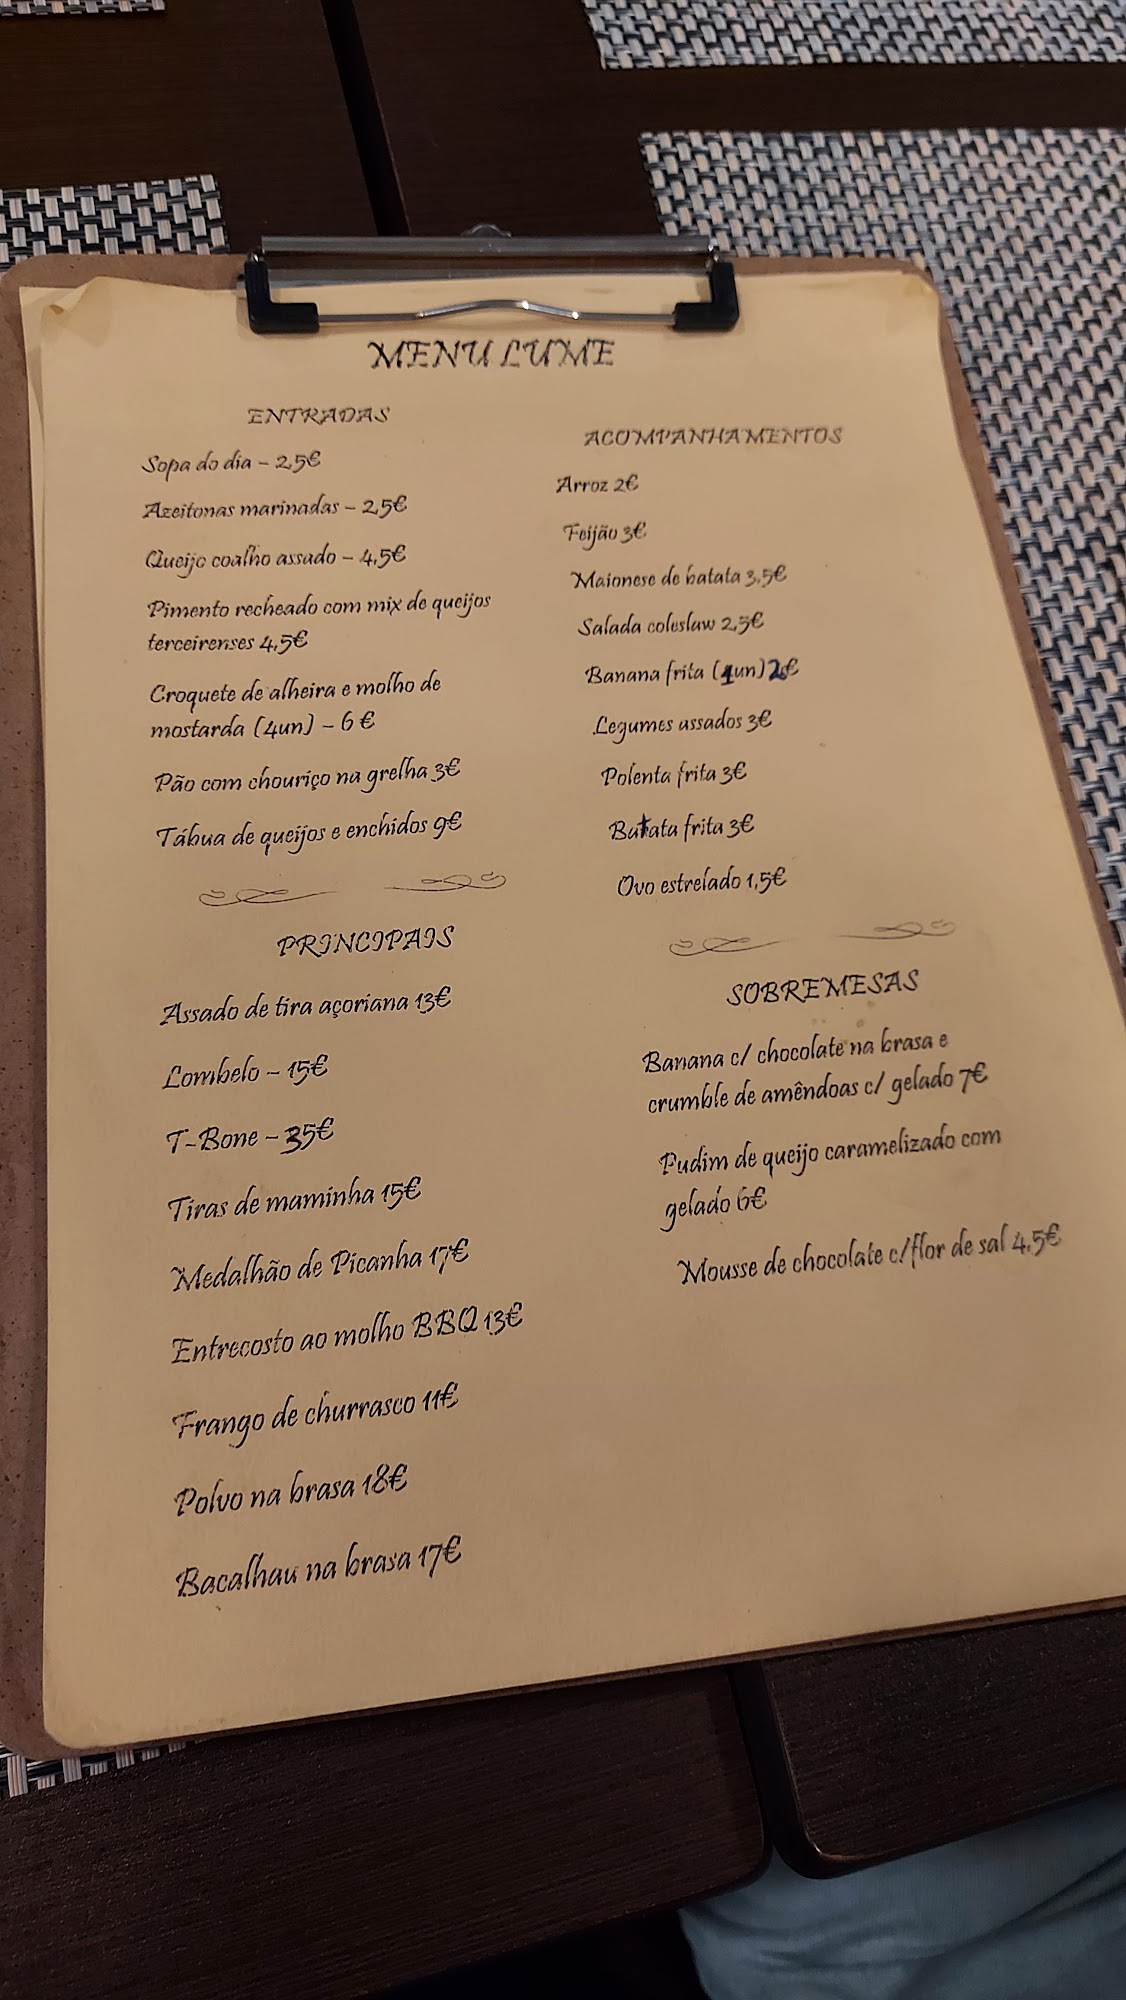 MENU LUME
ENTRADAS
Sopa do dia – 2,5€
Azeitonas marinadas – 2,5€
Queijo coalho assado – 4,5€
Pimento recheado com mix de queijos
terceirenses 4,5€
Croquete de alheira e molho de
mostarda (4un) – 6 €
Pão com chouriço na grelha 3€
Tábua de queijos e enchidos 9€
PRINCIPAIS
Assado de tira açoriana 13€
Lombelo – 15€
T-Bone – 35€
Tiras de maminha 15€
Medalhão de Picanha 17€
Entrecosto ao molho BBQ 13€
Frango de churrasco 11€
Polvo na brasa 18€
Bacalhau na brasa 17€
ACOMPANHAMENTOS
Arroz 2€
Feijão 3€
Maionese de batata 3,5€
Salada coleslaw 2,5€
Banana frita (1un) 2€
Legumes assados 3€
Polenta frita 3€
Batata frita 3€
Ovo estrelado 1,5€
SOBREMESAS
Banana c/ chocolate na brasa e
crumble de amêndoas c/ gelado 7€
Pudim de queijo caramelizado com
gelado 6€
Mousse de chocolate c/flor de sal 4,5€